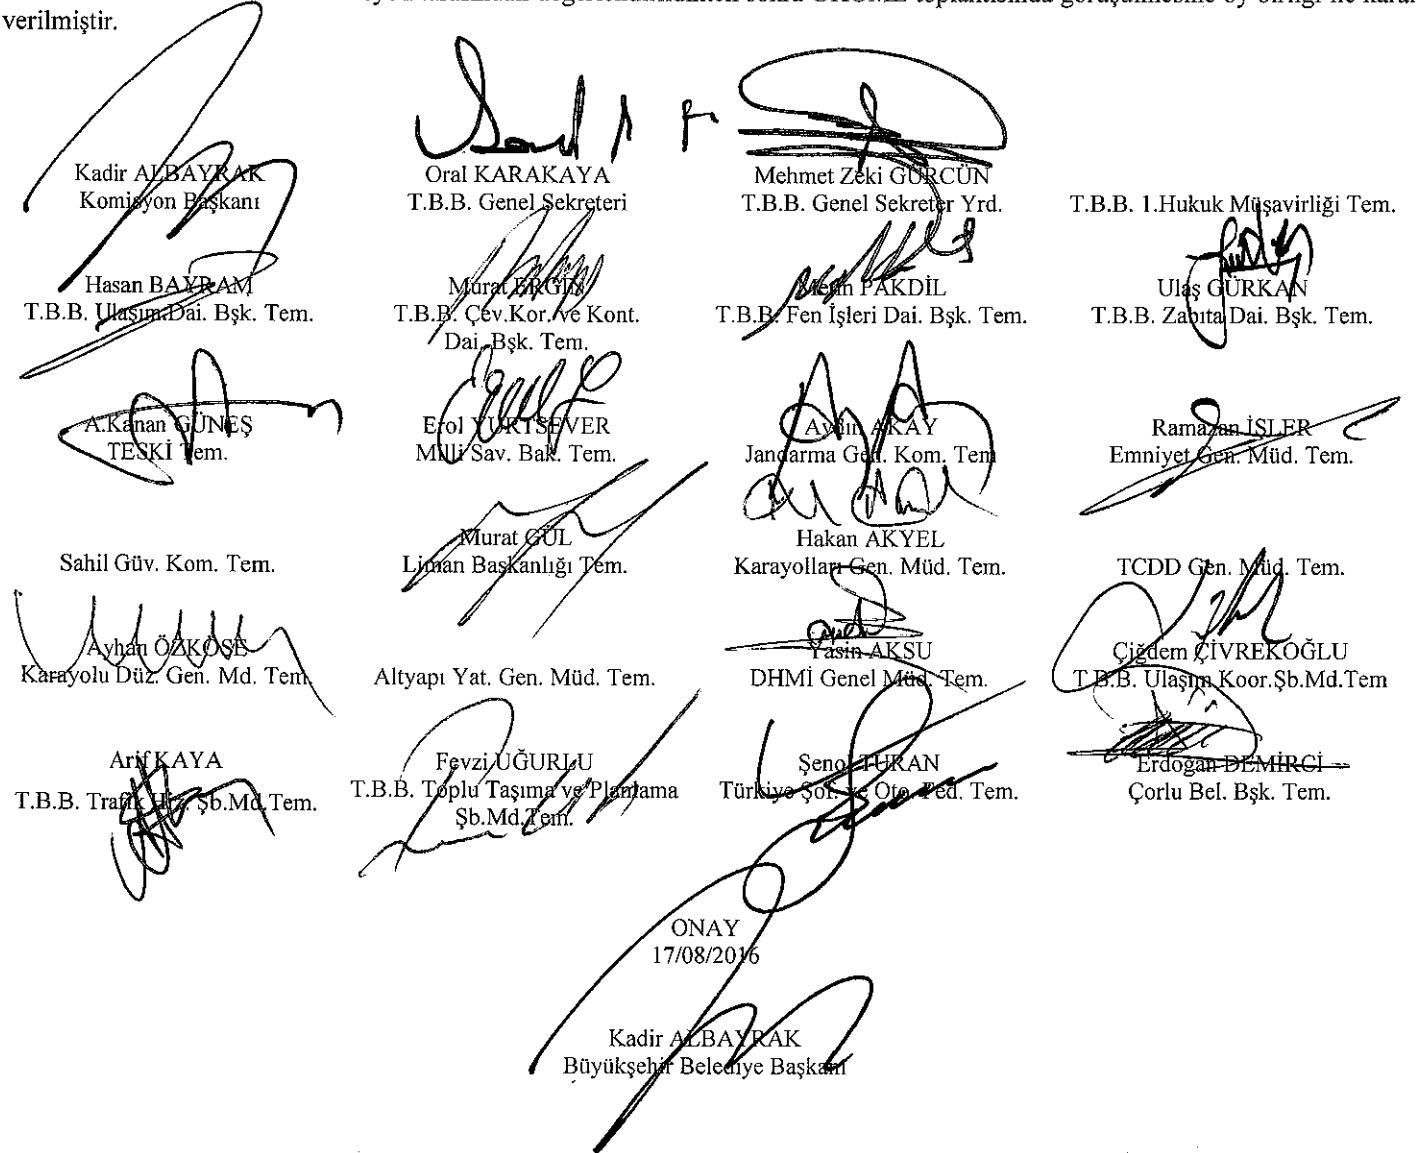 sonra UKOME toplantısında görüşülmesine oy birliği ile karar
verilmiştir.
Kadir ALBAYRAK
Komisyon Başkanı
Oral KARAKAYA
T.B.B. Genel Sekreteri
Mehmet Zeki GÜRCÜN
T.B.B. Genel Sekreter Yrd.
T.B.B. 1.Hukuk Müşavirliği Tem.
Hasan BAYRAM
T.B.B. Ulaşım Dai. Bşk. Tem.
Murat ERGİN
T.B.B. Çev.Kor. ve Kont.
Dai. Bşk. Tem.
Metin PAKDİL
T.B.B. Fen İşleri Dai. Bşk. Tem.
Ulaş GÜRKAN
T.B.B. Zabıta Dai. Bşk. Tem.
A.Kanan GÜNEŞ
TESKİ Tem.
Erol YURTSEVER
Milli Sav. Bak. Tem.
Aydın AKAY
Jandarma Gen. Kom. Tem
Ramazan İŞLER
Emniyet Gen. Müd. Tem.
Sahil Güv. Kom. Tem.
Murat GÜL
Liman Başkanlığı Tem.
Hakan AKYEL
Karayolları Gen. Müd. Tem.
TCDD Gen. Müd. Tem.
Ayhan ÖZKÖSE
Karayolu Düz. Gen. Md. Tem.
Altyapı Yat. Gen. Müd. Tem.
Yasin AKSU
DHMİ Genel Müd. Tem.
Çiğdem ÇİVREKOĞLU
T.B.B. Ulaşım Koor.Şb.Md.Tem
Arif KAYA
T.B.B. Trafik Hiz. Şb.Md.Tem.
Fevzi UĞURLU
T.B.B. Toplu Taşıma ve Planlama
Şb.Md.Tem.
Şenol TURAN
Türkiye Şof. ve Oto. Fed. Tem.
Erdoğan DEMİRCİ
Çorlu Bel. Bşk. Tem.
ONAY
17/08/2016
Kadir ALBAYRAK
Büyükşehir Belediye Başkanı